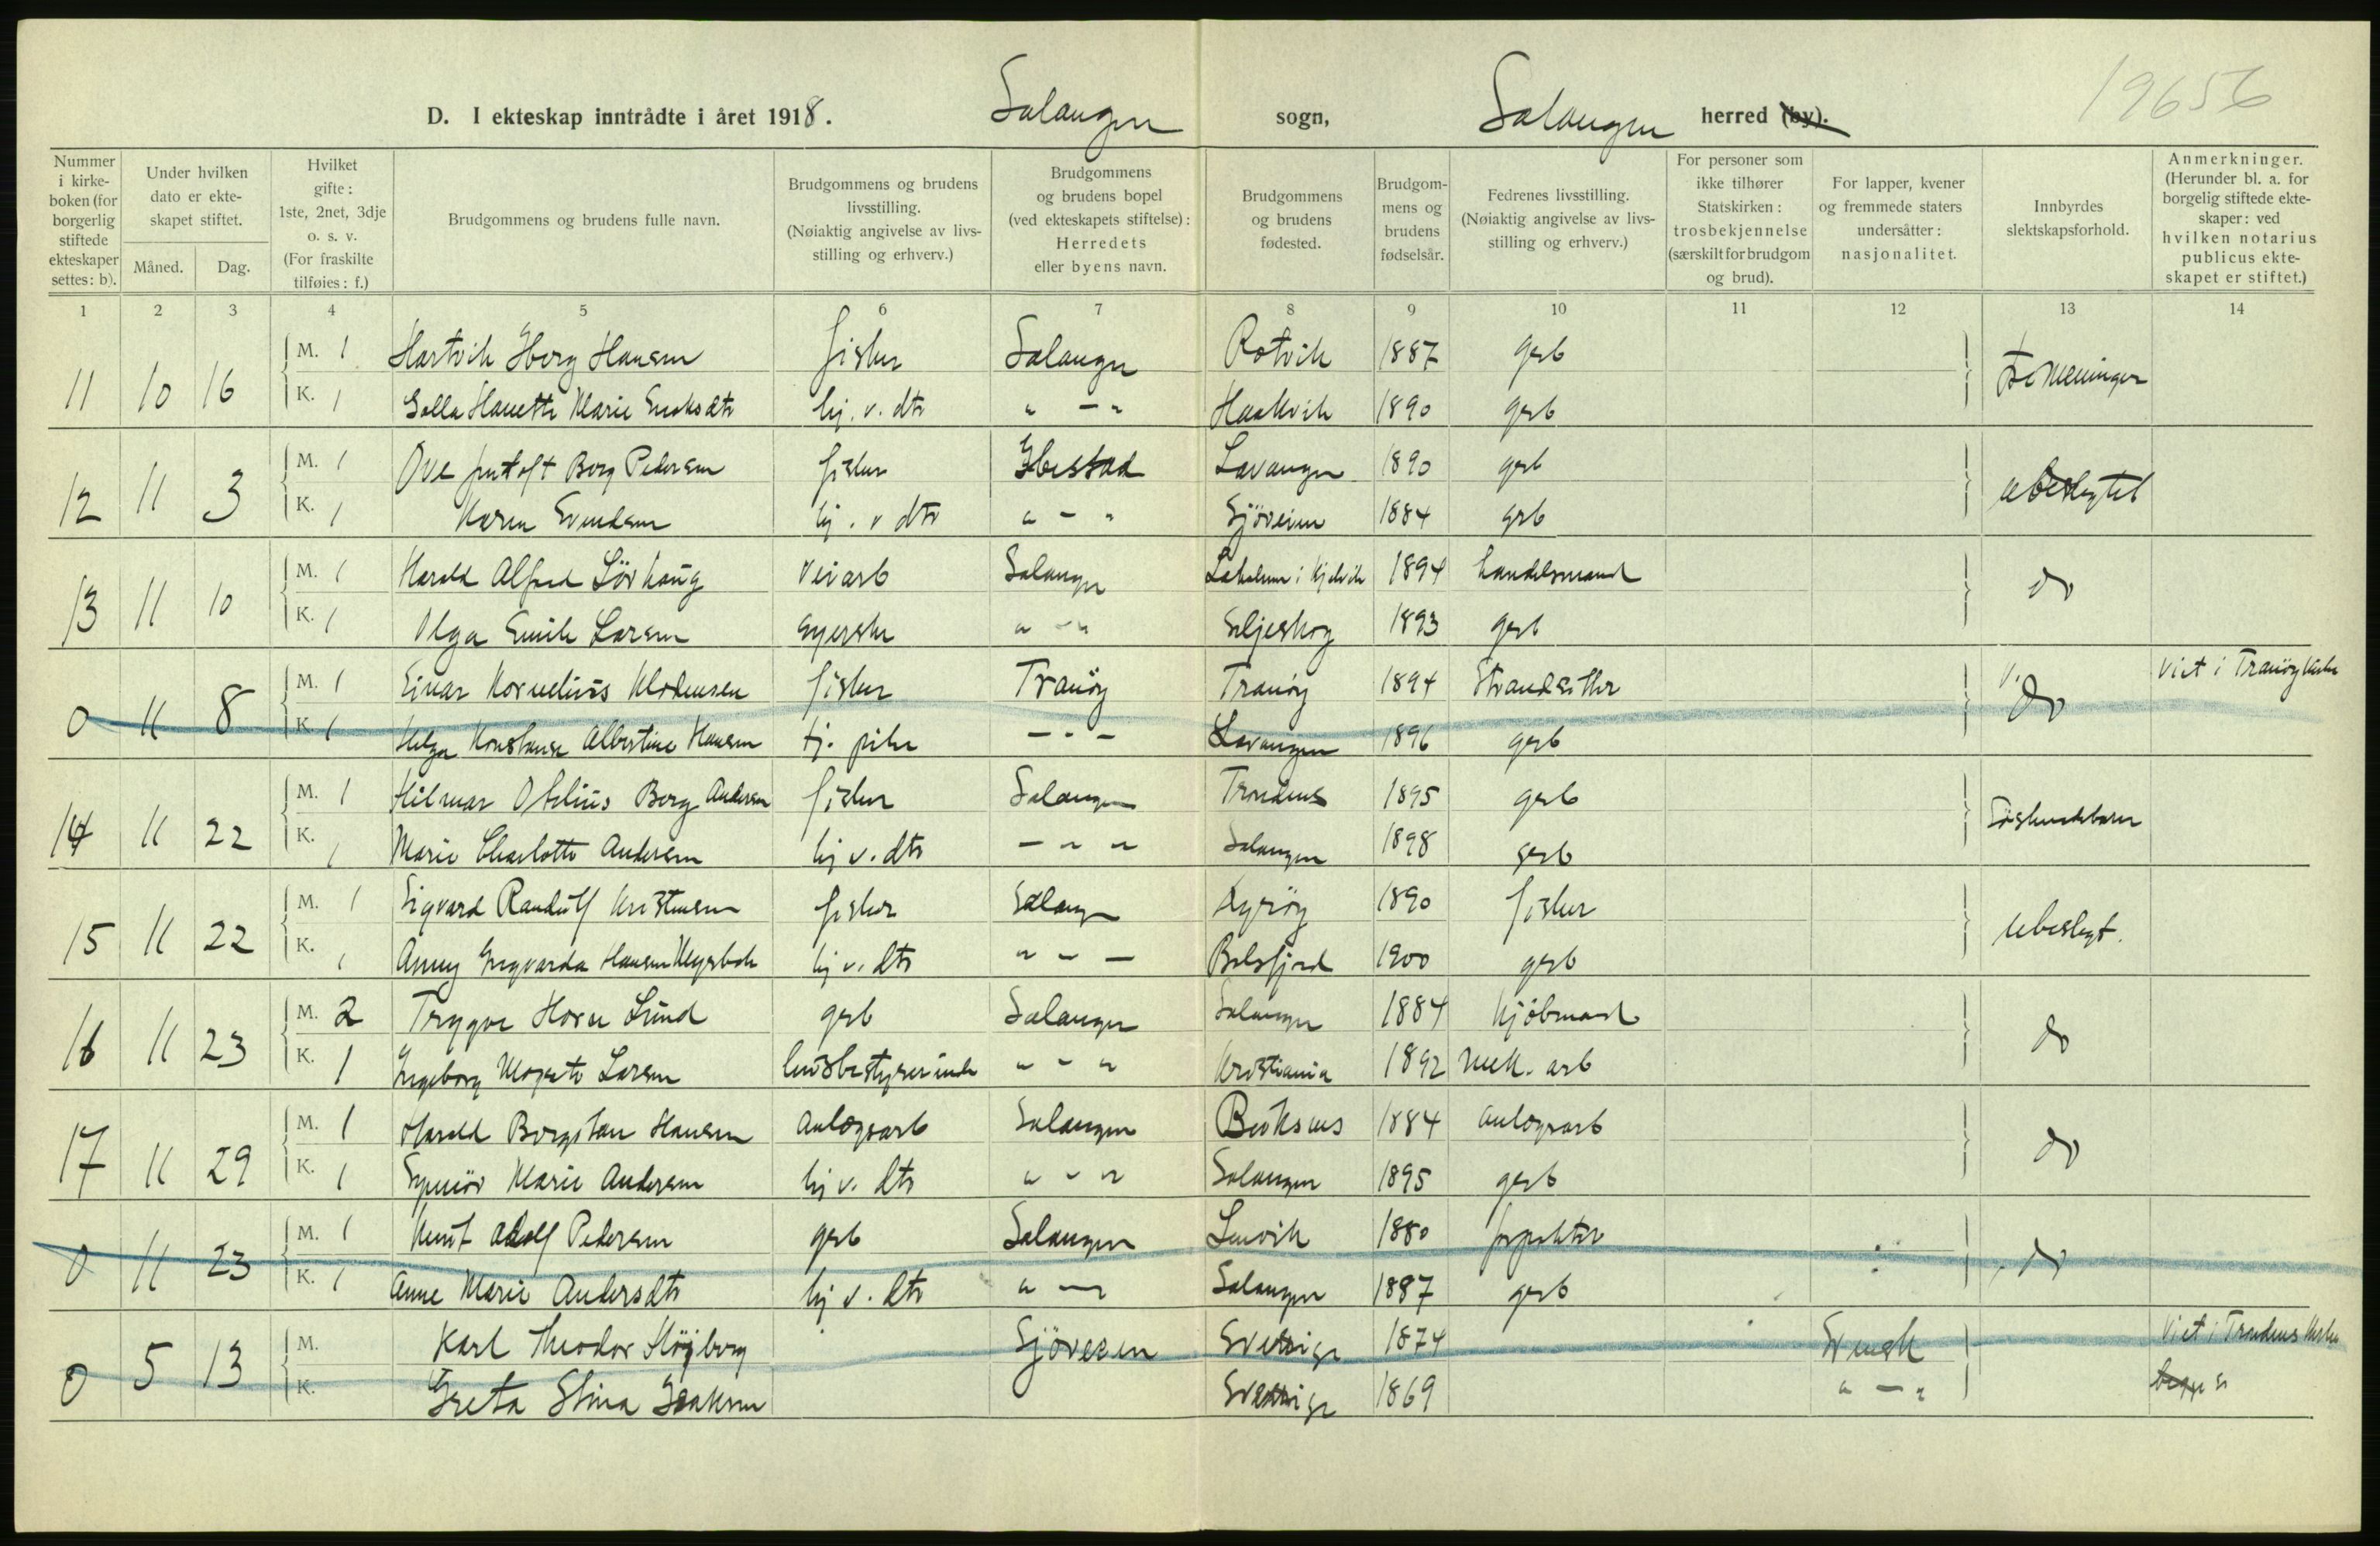 19656
D. I ekteskap inntrådte i året 1918. Salangen sogn, Salangen herred (by).
Nummer i kirkeboken (for borgerlig stiftede ekteskaper settes: b).
Under hvilken dato er ekteskapet stiftet.
Måned. Dag.
Hvilket gifte: 1ste, 2net, 3dje o. s. v. (For fraskilte tilføies: f.)
Brudgommens og brudens fulle navn.
Brudgommens og brudens livsstilling. (Nøiaktig angivelse av livsstilling og erhverv.)
Brudgommens og brudens bopel (ved ekteskapets stiftelse): Herredets eller byens navn.
Brudgommens og brudens fødested.
Brudgommens og brudens fødselsår.
Fedrenes livsstilling. (Nøiaktig angivelse av livsstilling og erhverv.)
For personer som ikke tilhører Statskirken: trosbekjennelse (særskilt for brudgom og brud).
For lapper, kvener og fremmede staters undersåtter: nasjonalitet.
Innbyrdes slektskapsforhold.
Anmerkninger. (Herunder bl. a. for borgelig stiftede ekteskaper: ved hvilken notarius publicus ekteskapet er stiftet.)
1 2 3 4 5 6 7 8 9 10 11 12 13 14
11 10 16 M. 1 Hartvik Iberg Hansen fisker Salangen Rotvik 1887 grb tremenninger
K. 1 Hanette Marie hj. v. dtr " - " Haakvik 1890 grb
12 11 3 M. 1 Ove Berg Pedersen fisker Ibestad Lavangen 1890 grb ubeslegtet
K. 1 Karen Svendsen hj. v dtr " - " Sjøveien 1884 grb
13 11 10 M. 1 Harald Alfred Lövhaug Veiarb Salangen i Kjelvik 1894 handelsmand do
K. 1 Olga Emilie Larsen syerske " - " Seljeskog 1893 grb
0 11 8 M. 1 Einar Kornelius Klodiusen fisker Tranöy Tranöy 1894 Strandsitter do Viet i Tranöy kirke
K. 1 Helga Konstanse Albertine Hansen tj. pike - - - Lavangen 1896 grb
14 11 22 M. 1 Hilmar Otelius Berg Andersen fisker Salangen Trondenes 1895 grb Söskendebarn
K. 1 Marie Charlotte Andersen hj v. dtr - " " Salangen 1898 grb
15 11 22 M. 1 Sigvard Randulf Kristensen fisker Salangen 1890 fisker ubeslegt.
K. 1 Anny Ingvarda Hansen hj v. dtr " - - Balsfjord 1900 grb
16 11 23 M. 2 Trygve Horn Lund grb Salangen Salangen 1884 Kjöbmand do
K. 1 Ingeborg Margrete Larsen husbestyrerinde " - " Kristiania 1892 mek. arb
17 11 29 M. 1 Harald Bergitan Hansen Anlægsarb Salangen Beiksnes 1884 anlægsarb do
K. 1 Synnöv Marie Andersen hj v. dtr " - " Salangen 1895 grb
0 11 23 M. 1 Knut Adolf Pedersen grb Salangen Lenvik 1880 forpakter do
K. 1 Anne Marie Andersdtr hj v. dtr " - " Salangen 1887 grb
0 5 13 M. Karl Theodor Höjberg Sjöveien Sverrige 1874 Svensk Viet i Trondenes kirke
K. Greta Stina Isaksen Sverrige 1869 " - " begge s